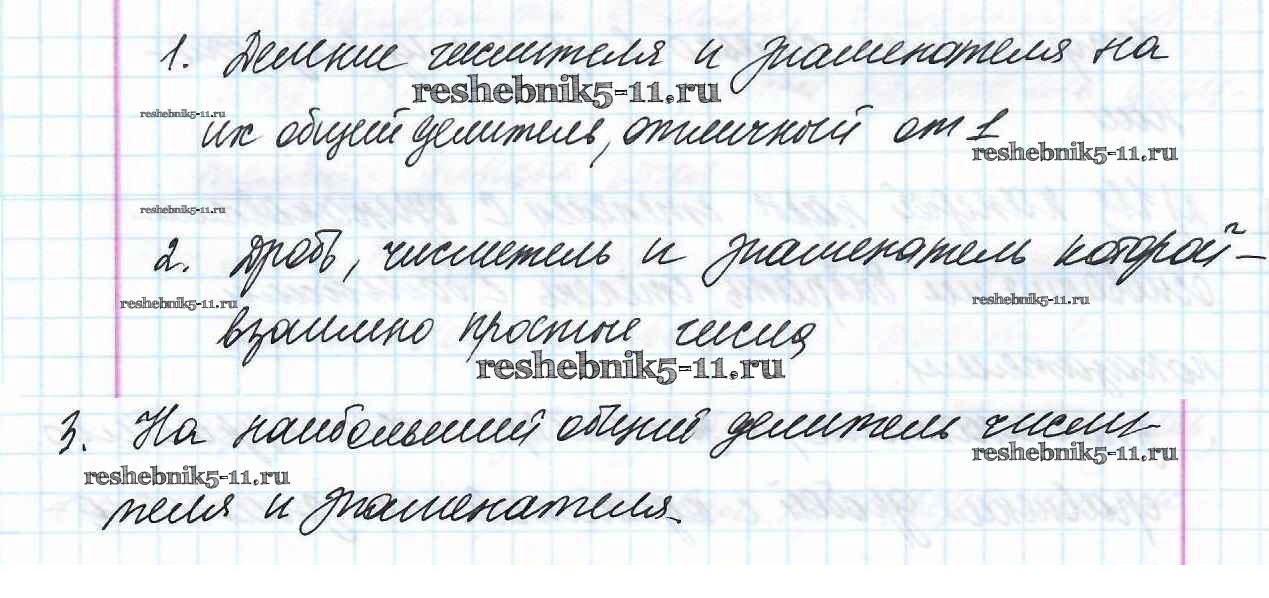 1. Деление числителя и знаменателя на
reshebnik5-11.ru
reshebnik5-11.ru
их общий делитель, отличный от 1
reshebnik5-11.ru
reshebnik5-11.ru
2. Дробь, числитель и знаменатель которой –
reshebnik5-11.ru
reshebnik5-11.ru
взаимно простые числа
reshebnik5-11.ru
3. На наибольший общий делитель числи-
reshebnik5-11.ru
reshebnik5-11.ru
теля и знаменателя